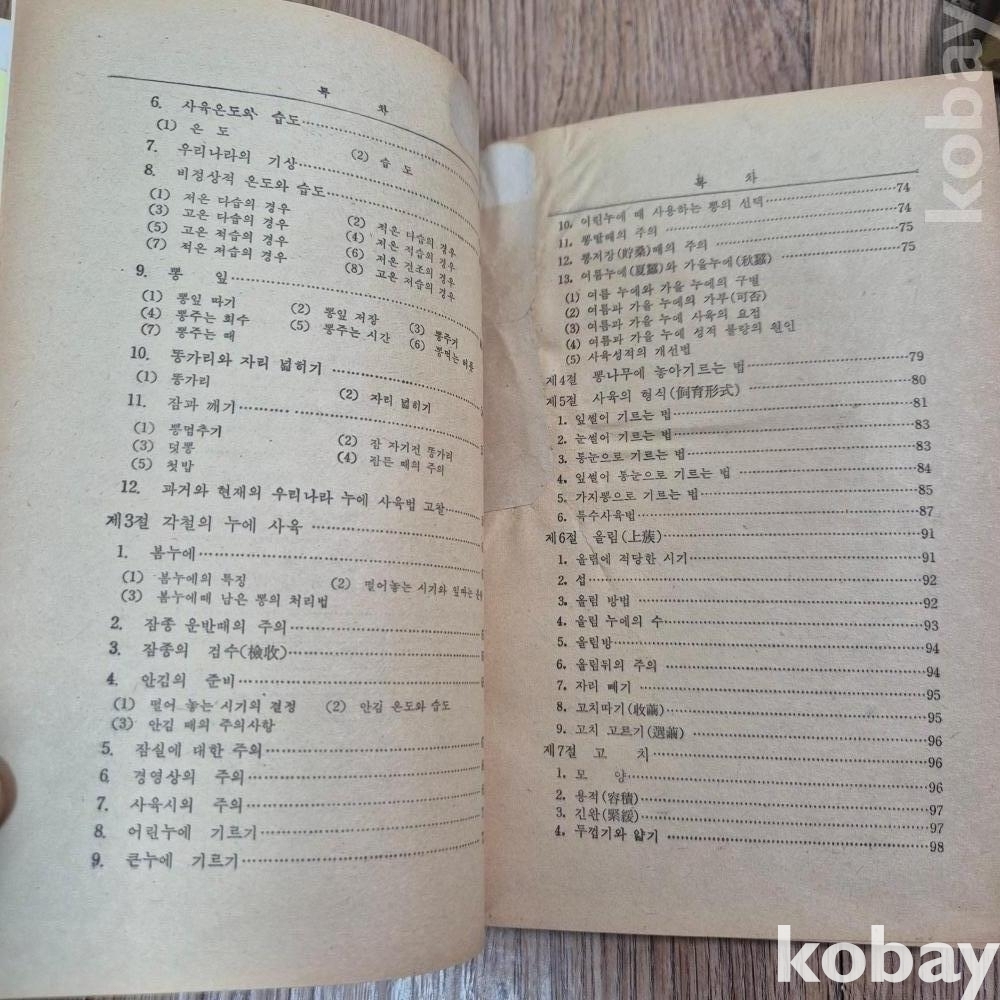 목 차
6. 사육온도와 습도
(1) 온 도 (2) 습 도
7. 우리나라의 기상
8. 비정상적 온도와 습도
(1) 저온 다습의 경우 (2) 저온 적습의 경우
(3) 고온 다습의 경우 (4) 저온 적습의 경우
(5) 고온 적습의 경우 (6) 저온 건조의 경우
(7) 적온 저습의 경우 (8) 고온 저습의 경우
9. 뽕 잎
(1) 뽕잎 따기 (2) 뽕잎 저장 (3) 뽕주기
(4) 뽕주는 회수 (5) 뽕주는 시간 (6) 뽕먹는 비율
(7) 뽕주는 때
10. 똥가리와 자리 넓히기
(1) 똥가리 (2) 자리 넓히기
11. 잠과 깨기
(1) 뽕멈추기 (2) 잠 자기전 똥가리
(3) 덧뽕 (4) 잠든 때의 주의
(5) 첫밥
12. 과거와 현재의 우리나라 누에 사육법 고찰
제3절 각철의 누에 사육
1. 봄누에
(1) 봄누에의 특징 (2) 떨어놓는 시기와 잎따는
(3) 봄누에때 남은 뽕의 처리법
2. 잠종 운반때의 주의
3. 잠종의 검수(檢收)
4. 안김의 준비
(1) 떨어 놓는 시기의 결정 (2) 안김 온도와 습도
(3) 안김 때의 주의사항
5. 잠실에 대한 주의
6. 경영상의 주의
7. 사육시의 주의
8. 어린누에 기르기
9. 큰누에 기르기
목 차
10. 어린누에 때 사용하는 뽕의 선택 74
11. 뽕딸때의 주의 74
12. 뽕저장(貯桑)때의 주의 75
13. 여름누에(夏蠶)와 가을누에(秋蠶) 75
(1) 여름 누에와 가을 누에의 구별
(2) 여름과 가을 누에의 가부(可否)
(3) 여름과 가을 누에 사육의 요점
(4) 여름과 가을 누에 성적 불량의 원인
(5) 사육성적의 개선법
제4절 뽕나무에 놓아기르는 법 79
제5절 사육의 형식(飼育形式) 80
1. 잎썰어 기르는 법 81
2. 눈썰어 기르는 법 83
3. 통눈으로 기르는 법 83
4. 잎썰어 통눈으로 기르는 법 84
5. 가지뽕으로 기르는 법 85
6. 특수사육법 87
제6절 올림(上蔟) 91
1. 올림에 적당한 시기 91
2. 섭 92
3. 올림 방법 92
4. 올림 누에의 수 93
5. 올림방 94
6. 올림뒤의 주의 94
7. 자리 빼기 95
8. 고치따기(收繭) 95
9. 고치 고르기(選繭) 96
제7절 고 치 96
1. 모 양
2. 용적(容積) 97
3. 긴완(緊緩) 97
4. 두껍기와 얇기 98
kobay
kobay